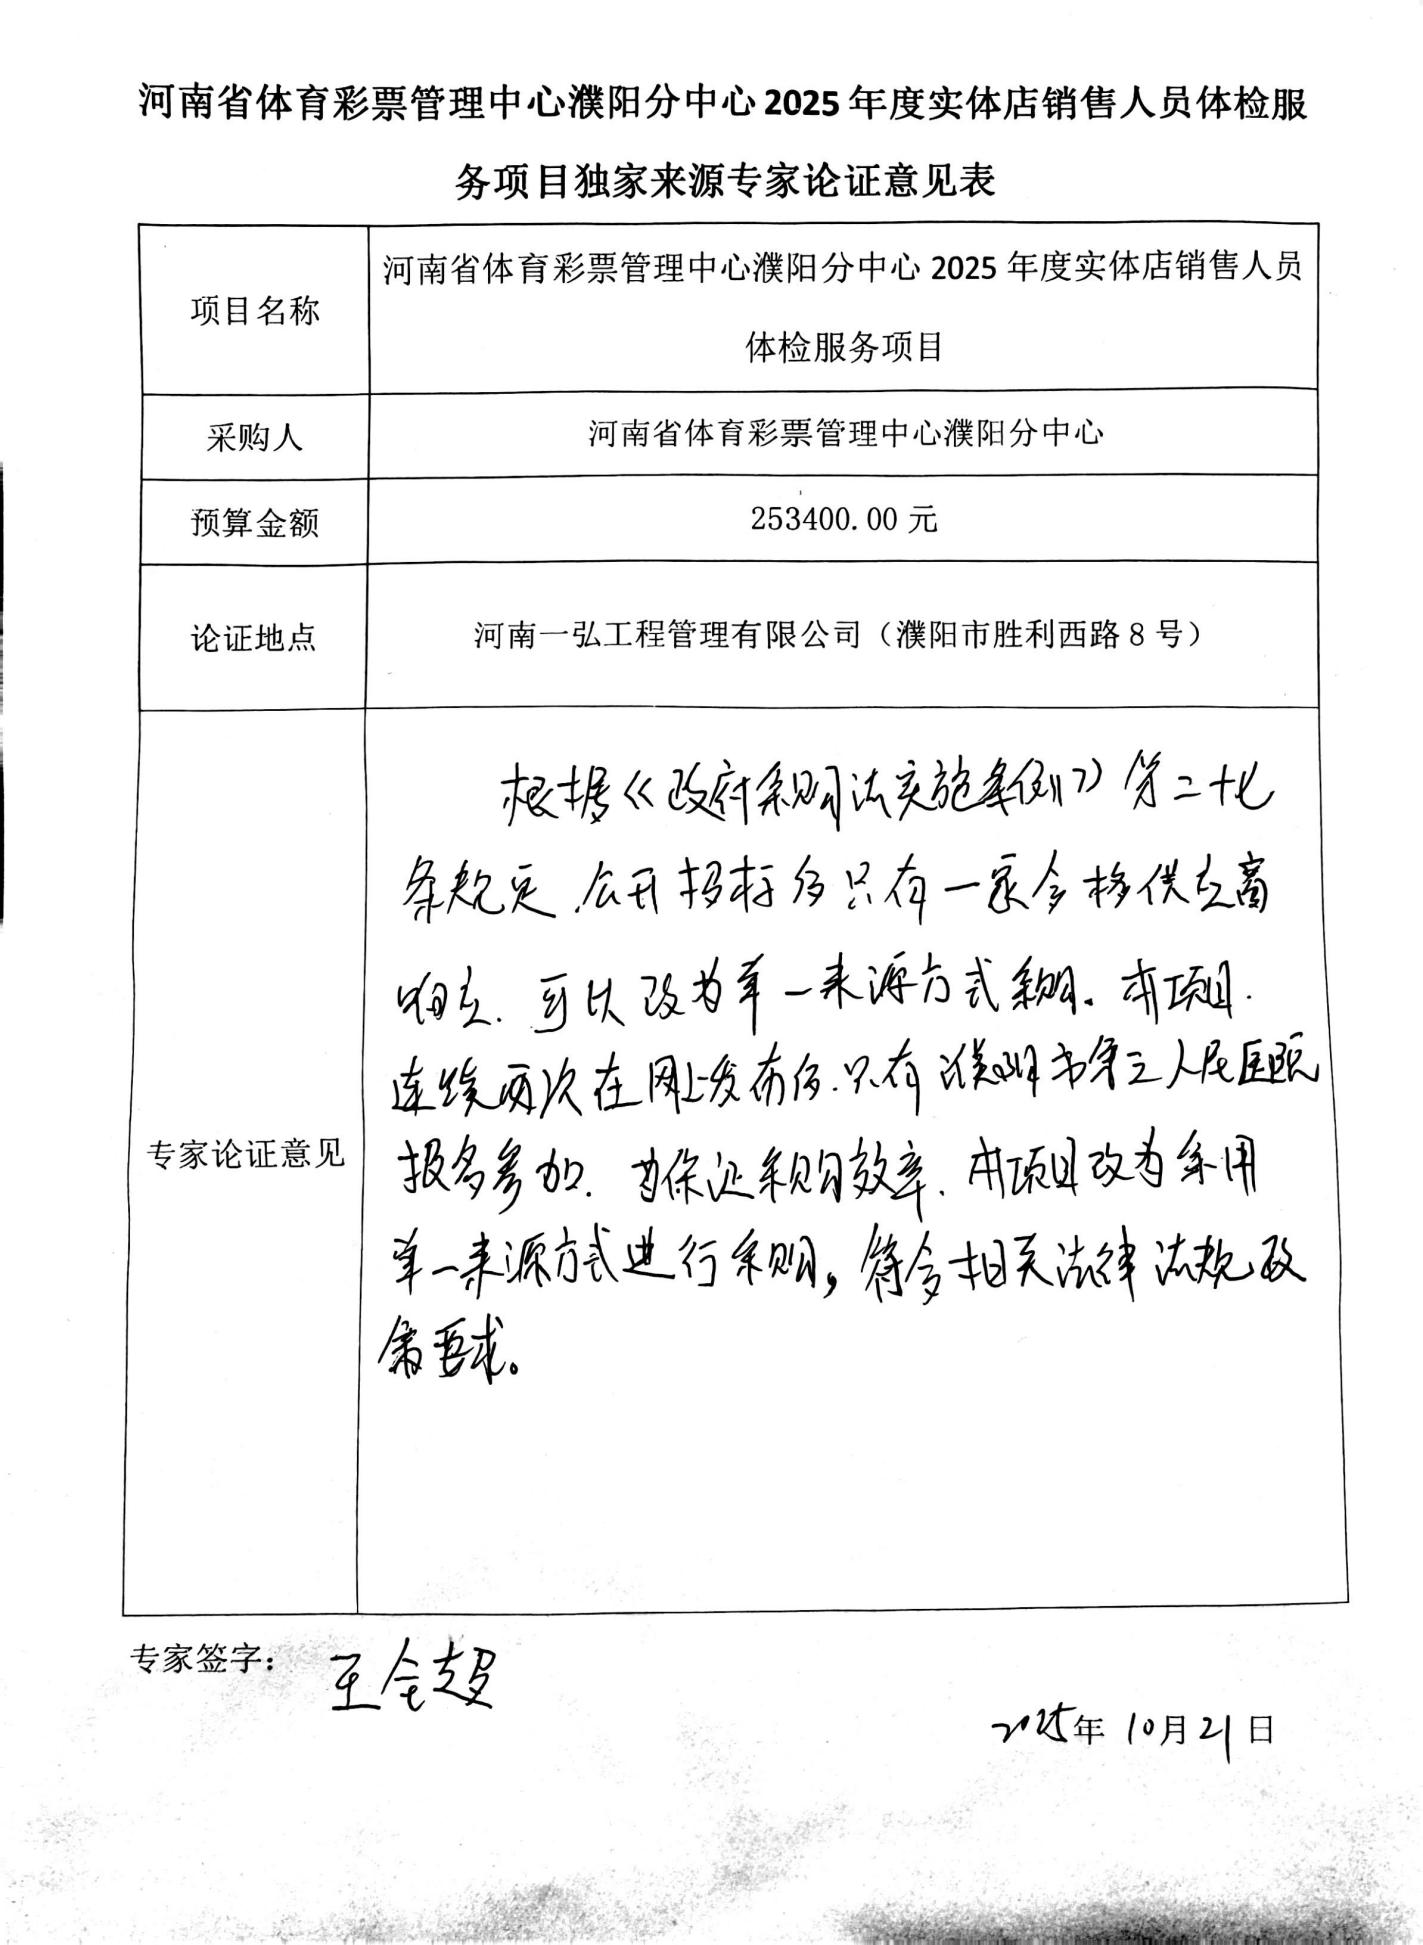 河南省体育彩票管理中心濮阳分中心2025年度实体店销售人员体检服
务项目独家来源专家论证意见表
项目名称
河南省体育彩票管理中心濮阳分中心2025年度实体店销售人员
体检服务项目
采购人
河南省体育彩票管理中心濮阳分中心
预算金额
253400.00元
论证地点
河南一弘工程管理有限公司（濮阳市胜利西路8号）
专家论证意见
根据《政府采购法实施条例》第二十七
条规定，公开招标后只有一家合格供应商
响应，可以改为单一来源方式采购。本项目，
连续两次在网上发布后，只有濮阳市第三人民医院
报名参加，为保证采购效率，本项目改为采用
单一来源方式进行采购，符合相关法律法规政
策要求。
专家签字：
王全超
2025年10月21日